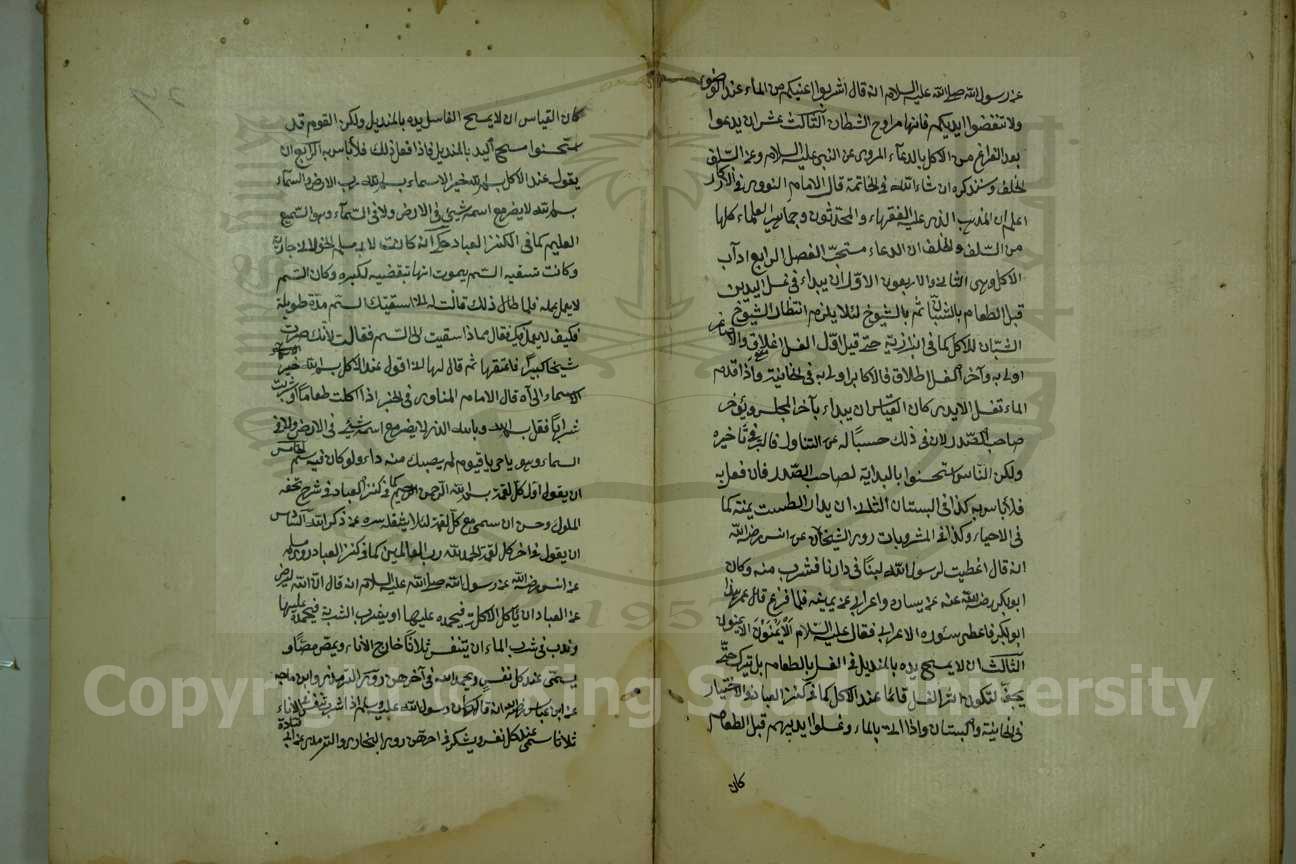 عن رسول الله صلى الله عليه السلام انه قال اشربوا اعينكم من الماء عند الوضوء
ولا تنفضوا ايديكم فانها مراوح الشيطان الثالث عشر ان يدعوا
بعد الفراغ من الاكل بالدعاء المروى عن النبى عليه السلام وعن السلف
والخلف وسنذكره ان شاء الله فى الخاتمة قال الامام النووى فى الاذكار
اعلم ان المذهب الذى عليه الفقهاء والمحدثون وجماهير العلماء كلها
من السلف والخلف ان الدعاء مستحب الفصل الرابع آداب
الاكل وهى الثانى والاربعون الاول ان يبداء فى غسل اليدين
قبل الطعام بالشبان ثم بالشيوخ لئلا يلزم انتظار الشيوخ
الشبان للاكل كما فى البزازية حتى قيل اول الغسل اغلاق والاصاغر
اولى به وآخر الغسل اطلاق فالاكابر اولى به فى الخانية واذا قدم
الماء لغسل الايدى كان القياس ان يبداء بآخر المجلس ويؤخر
صاحب الصدر لان فى ذلك حسبًا له عن التناول فالبر فى تأخيره
ولكن الناس استحسنوا بالبداية لصاحب الصدر فان فعل به
فلا بأس به كذا فى البستان الثانى ان يدار الطست يمنة كما
فى الاحياء وكذا فى المشروبات روى الشيخان عن انس رضى الله
انه قال اعطيت لرسول الله لبنًا فى دارنا فشرب منه وكان
ابو بكر رضى الله عنه عن يساره واعرابى عن يمينه فلما فرغ قال عمر هذا
ابو بكر فاعطى سؤره الاعرابى فقال عليه السلام الايمنون الايمنون
الثالث ان لا يمسح يده بالمنديل فى الغسل بالطعام بل تترك حتى
يجف لتكون اثر الغسل قائما عند الاكل كما فى كنز العباد والاختيار
فى الخانية والبستان واذا اتى بالماء وغسلوا ايديهم قبل الطعام
كان
كان القياس ان لا يمسح الغاسل يده بالمنديل ولكن القوم قد
استحسنوا مسح اليد بالمنديل فاذا فعل ذلك فلا بأس به الرابع ان
يقول عند الاكل بسم الله خير الاسماء بسم الله رب الارض والسماء
بسم الله لا يضر مع اسمه شئ فى الارض ولا فى السماء وهو السميع
العليم كما فى الكنز العباد حكى انه كانت لابى مسلم الخولانى جارية
وكانت تسقيه السم يموت انها تبغضيه لكبره وكان السم
لا يعمل عمله فلما طال ذلك قالت له انا اسقيتك السم مدة طويلة
فكيف لا يعمل فيك فقال لماذا سقيت لى السم فقالت لانك صرت
شيخا كبيرًا فاعتقها ثم قال لها انا اقول عند الاكل بسم الله خير
الاسماء الى آه قال الامام المناوى فى الخبر اذا اكلت طعاما او شربت
شرابًا فقل بسم الله وبالله الذى لا يضر مع اسمه شئ فى الارض ولا فى
السماء وهو يا حى يا قيوم لم يصبك منه داء ولو كان فيه سم الخامس
ان يقول اول كل لقمة بسم الله الرحمن الرحيم كما فى كنز العباد وفى شرح تحفة
الملوك وحسن ان سمى مع كل لقمة لئلا يشغله سره عن ذكر الله السادس
ان يقول فى اخر كل لقمة الحمد لله رب العالمين كما فى كنز العباد روى مسلم
عن انس رضى الله عن رسول الله صلى الله عليه السلام انه قال ان الله ليرضى
عن العباد ان يأكل الاكلة فيحمده عليها او يشرب الشربة فيحمده عليها
وندب فى شرب الماء ان يتنفس ثلاثًا خارج الاناء ويمص مصًا و
يسمى عند كل نفس ويحمد الله فى آخرهن روى الترمذى وابن ماجه
عن ابن عباس رضى الله انه قال كان رسول الله عليه وسلم اذا شرب تنفس فى الاناء
ثلاثا سمى عند كل نفس ويشكر فى اخرهن روى البخارى والترمذى عن ابى قتادة
Copyright © King Saud University
1957